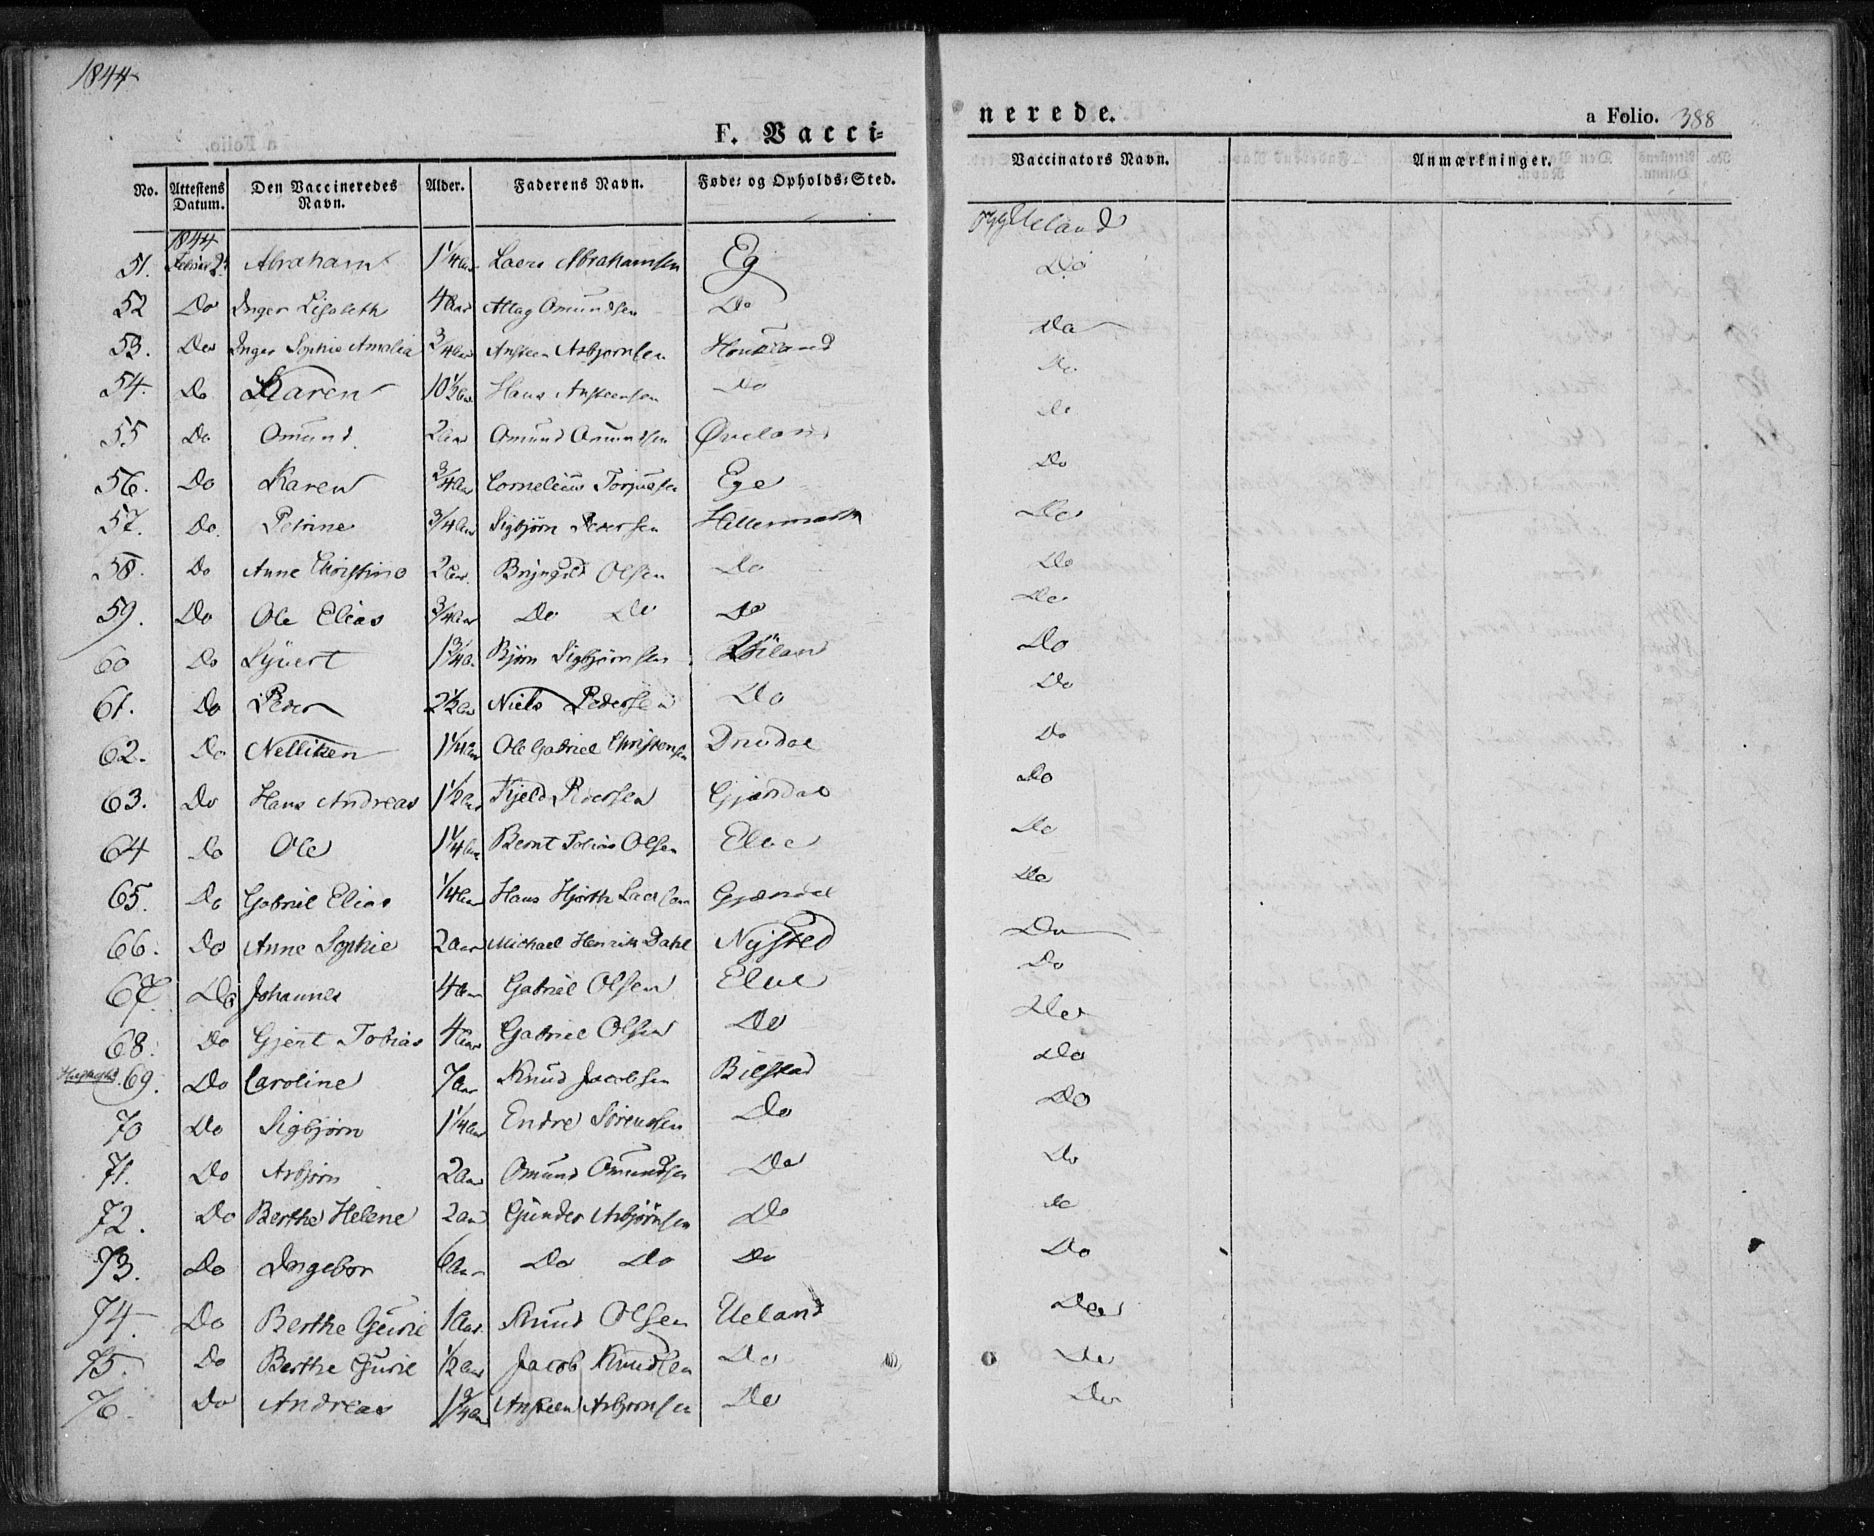 1844
F. Vacci-
nerede.
a Folio. 388
No. Attestens Datum. Den Vaccineredes Navn. Alder. Faderens Navn. Føde- og Opholds-Sted. Vaccinators Navn. Anmærkninger.
1844
51. Abraham 1 1/4 aar Laers Abrahamsen Eg Do
52 Do Inger Lisabeth 4 aar Omundsen Do Do
53. Do Inger Sophie Amalia 3/4 aar Ansteen Asbjørnsen Houkland Do
54. Do Karen 10 1/2 aar Hans Ansteensen Do Do
55 Do Omund 2 aar Omund Omundsen Øveland Do
56. Do Karen 3/4 aar Cornelius Torjusen Ege Do
57. Do. Petrine 3/4 aar Sigbjørn Pedersen Hellermark Do
58. Do Anne Christine 2 aar. Bryngeld Olsen Do Do
59. Do Ole Elias 3/4 aar Do Do Do Do
60 Do Syvert 1 3/4 aar Bjørn Sigbjørnsen Do
61. Do Peder 2 1/2 aar Niels Pedersen Do Do
62. Do Nelliken 1 1/4 aar Ole Gabriel Christensen Drivdal Do
63. Do Hans Andreas 1 1/2 aar Kjeld Pedersen Gjøndal Do
64 Do Ole 1 1/4 aar Bernt Tobias Olsen Elve Do
65. Do Gabriel Elias 1/4 aar Hans Hjorth Laersen Do
66. Do Anne Sophie 2 aar Michael Henrik Dahl Nysted Do
67. Do Johannes 4 aar Gabriel Olsen Elve Do
68. Do Gjert Tobias 4 aar Gabriel Olsen Do Do
69. Do Caroline 7 aar Knud Jacobsen Bilstad Do
70 Do Sigbjørn 1 1/4 aar Endre Sørensen Do Do
71. Do Asbjørn 2 aar Omund Omundsen Do Do
72. Do Berthe Helene 2 aar Gunder Asbjørnsen Do do
73. Do Ingebor 6 aar Do Do Do Do
74. Do Berthe Gurie 1 aar Knud Olsen Ueland Do
75. Do Berthe Gurie 1/2 aar Jacob Knudsen Do Do
76. Do Andreas Ansteen Asbjørnsen Do Do